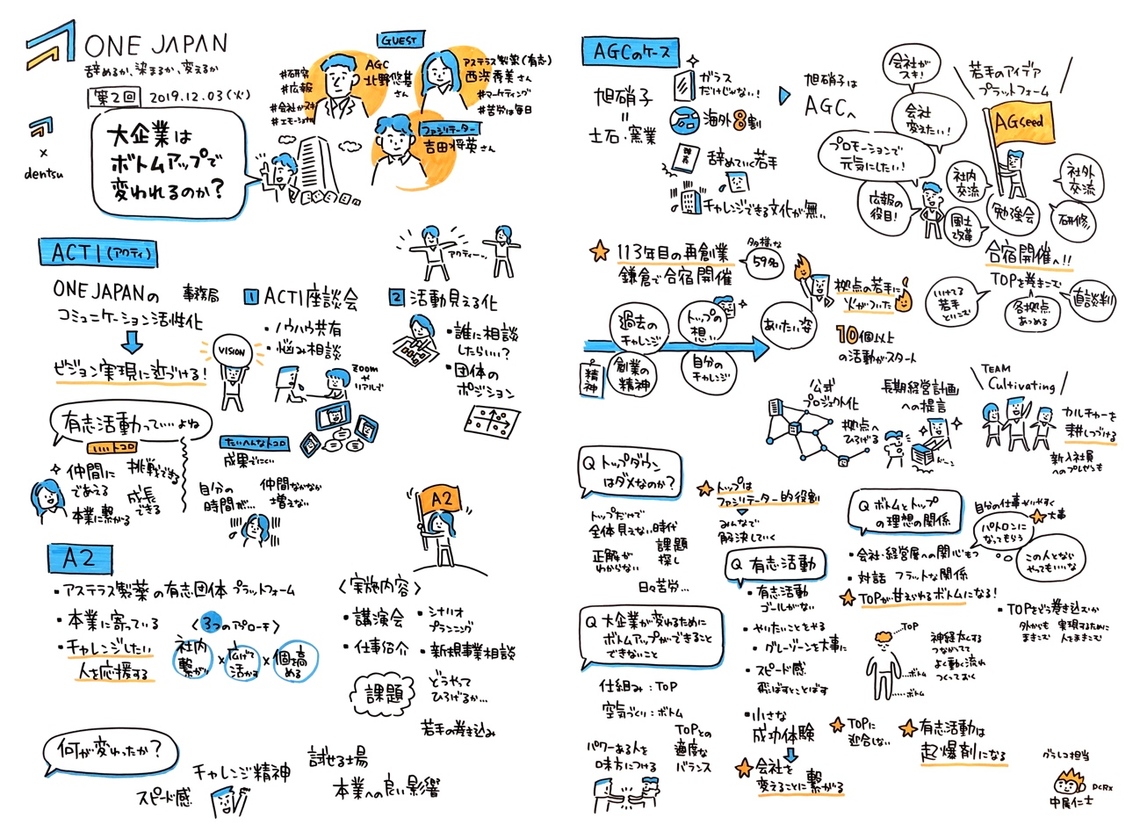 ONE JAPAN
辞めるか、染まるか、変えるか
第2回 2019.12.03(火)
×
dentsu
大企業は
ボトムアップで
変われるのか?
GUEST
#研究
#広報
#会社がスキ
AGC
北野悠基
さん
アステラス製薬(有志)
西浜秀美さん
#マーケティング
#苦労は毎日
ファシリテーター
吉田将英さん
ACT1(アクティ)
アクティー…
ONE JAPANの 事務局
コミュニケーション活性化
ビジョン実現に近づける!
VISION
1 ACT1座談会
・ノウハウ共有
・悩み相談
ZOOM
や
リアルで
2 活動見える化
・誰に相談
したらいい?
・団体の
ポジション
有志活動って…よね
いいトコロ
仲間に
であえる
挑戦できる
成長
できる
本業に繋がる
たいへんなトコロ
成果でにくい
自分の
時間が…
仲間なかなか
増えない
A2
A2
・アステラス製薬の有志団体 プラットフォーム
・本業に寄っている
・チャレンジしたい
人を応援する
〈3つのアプローチ〉
社内
繋がり
×
広げて
活かす
×
個を高
める
〈実施内容〉
・講演会
・シナリオ
プランニング
・仕事紹介
・新規事業相談
課題
どうやって
ひろげるか…
若手の巻き込み
何が変わったか?
スピード感
チャレンジ精神
試せる場
本業への良い影響
AGCのケース
旭硝子
=
土石・窯業
ガラス
だけじゃない!
海外8割
辞書
辞めていく若手
チャレンジできる文化が無い
旭硝子は
AGCへ
会社が
スキ!
会社
変えたい!
プロモーションで
元気にしたい!
広報の
役目!
若手のアイデア
プラットフォーム
AGseed
社内
交流
社外
交流
風土
改革
勉強会
研修
合宿開催へ!!
TOPを巻きこむ
いけてる
若手
といこむ
各拠点
あつめる
直談判
113年目の再創業
鎌倉で合宿開催
多様な
59名
拠点の若手に
火がついた
過去の
チャレンジ
トップの
想い
ありたい姿
精神
創業の
精神
自分の
チャレンジ
10個以上
の活動がスタート
公式
プロジェクト化
拠点へ
ひろげる
長期経営計画
への提言
ドーン
TEAM
Cultivating
カルチャーを
耕しつづける
新入社員
へのプレゼンも
Q トップダウン
はダメなのか?
トップだけで
全体見えない時代
正解が
わからない
課題
探し
日々苦労…
トップは
ファシリテーター的役割
みんなで
解決していく
Q 有志活動
・有志活動
ゴールがない
・やりたいことをやる
・グレーゾーンを大事に
・スピード感
飛ばすとことばす
・小さな
成功体験
会社を
変えることに繋がる
Q ボトムとトップ
の理想の関係
・会社・経営層への関心もつ
・対話 フラットな関係
TOPが甘えられるボトムになる!
自分の仕事がしやすく
大事
パトロンに
なってもらう
この人となら
やってもいいな
・TOPをどう巻き込むか
外からも
まきこむ
実現するために
人をまきこむ
TOP
ボトム
ボトム
神経太くする
つなかてて
よく動く流れ
つくっておく
Q 大企業が変わるために
ボトムアップができること
できないこと
仕組み:TOP
空気づくり:ボトム
パワーある人を
味方につける
TOPとの
適度な
バランス
TOPに
迎合しない
有志活動は
起爆剤になる
グラレコ担当
DCRX
中尾仁士